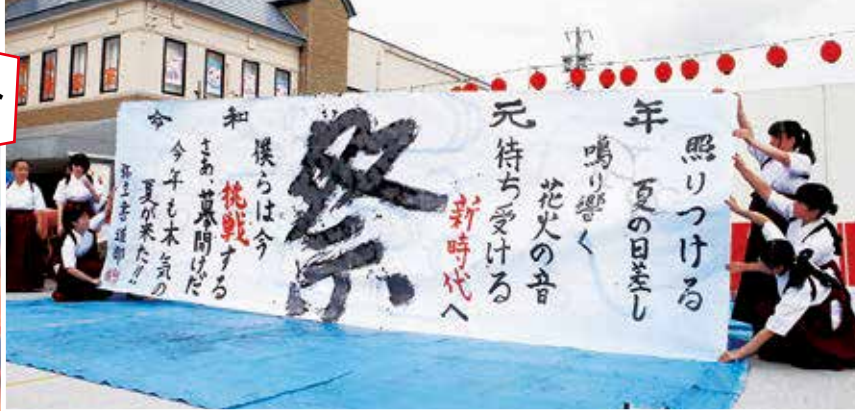 令和 元年
照りつける
夏の日差し
鳴り響く
花火の音
待ち受ける
新時代へ
祭
僕らは今
挑戦する
さあ、幕開けだ
今年も本気の
夏が来た!!
書道部